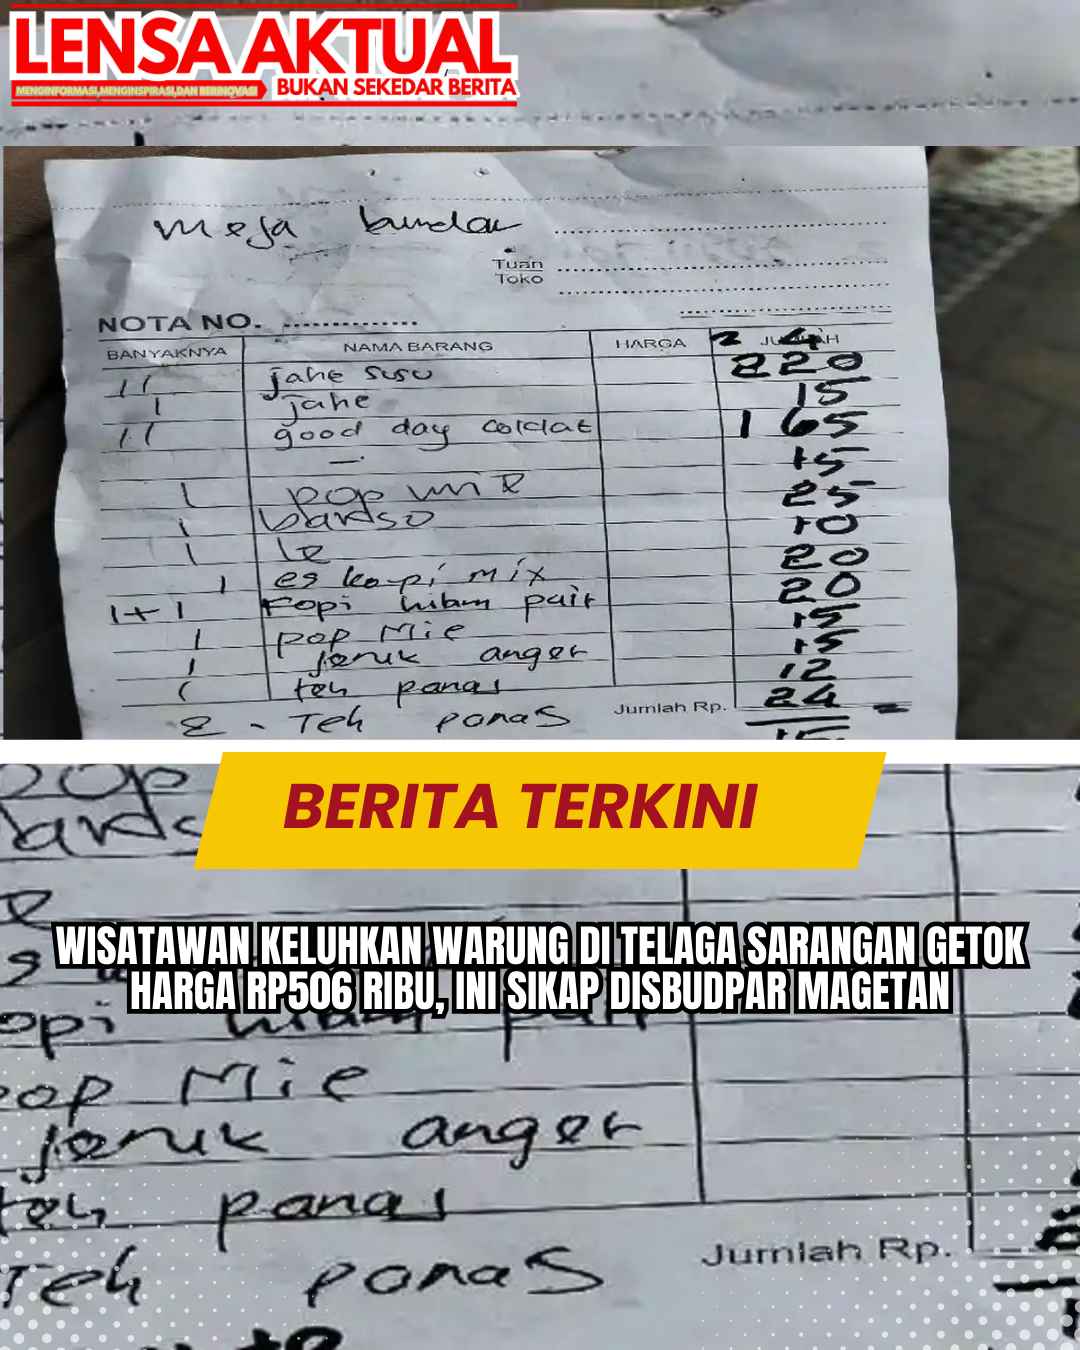 LENSA AKTUAL
MENGINFORMASI,MENGINSPIRASI,DAN BERINOVASI BUKAN SEKEDAR BERITA
meja bundar
Tuan
Toko
NOTA NO.
BANYAKNYA NAMA BARANG HARGA JUMLAH
11 jahe susu 220
1 jahe 15
11 good day coklat 165
15
1 pop mie 25
1 bakso 10
1 le 20
1 es kopi mix 20
1+1 kopi hitam pait 15
1 pop Mie 15
1 jeruk anger 12
1 teh panas 24
2 - Teh panas Jumlah Rp.
pop
BERITA TERKINI
WISATAWAN KELUHKAN WARUNG DI TELAGA SARANGAN GETOK
HARGA RP506 RIBU, INI SIKAP DISBUDPAR MAGETAN
opi hitam pait
pop Mie
jeruk anger
teh panas
Jumlah Rp.
Teh panas